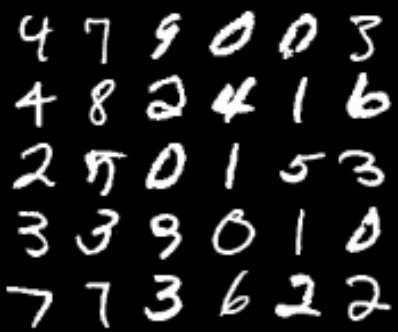 4 7 9 0 0 3
4 8 2 4 1 6
2 5 0 1 5 3
3 3 9 0 1 0
7 7 3 6 2 2